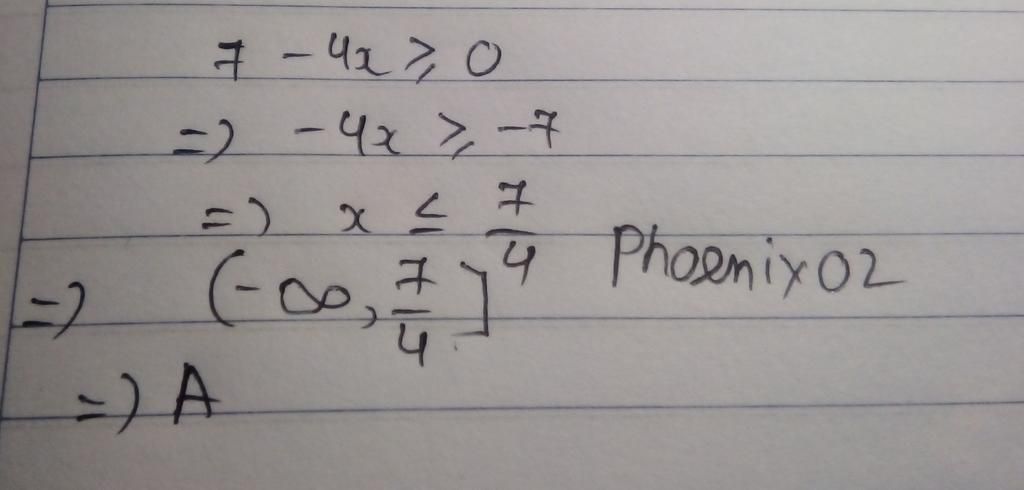 7 - 4x ≥ 0
=) -4x ≥ -7
=) x ≤ 7/4
=) (-∞, 7/4] Phoenix02
=) A